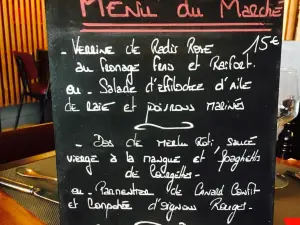 Menu du Marché
- Verrine de Radis Rose 15€
au fromage frais et Raifort.
ou - Salade d'effilochée d'Aile
de raie et poivrons marinés
- Dos de Merlu Rôti sauce
vierge à la mangue et Spaghettis
de Courgettes.
ou - Parmentier de Canard Confit
et Compotée d'oignons Rouges.